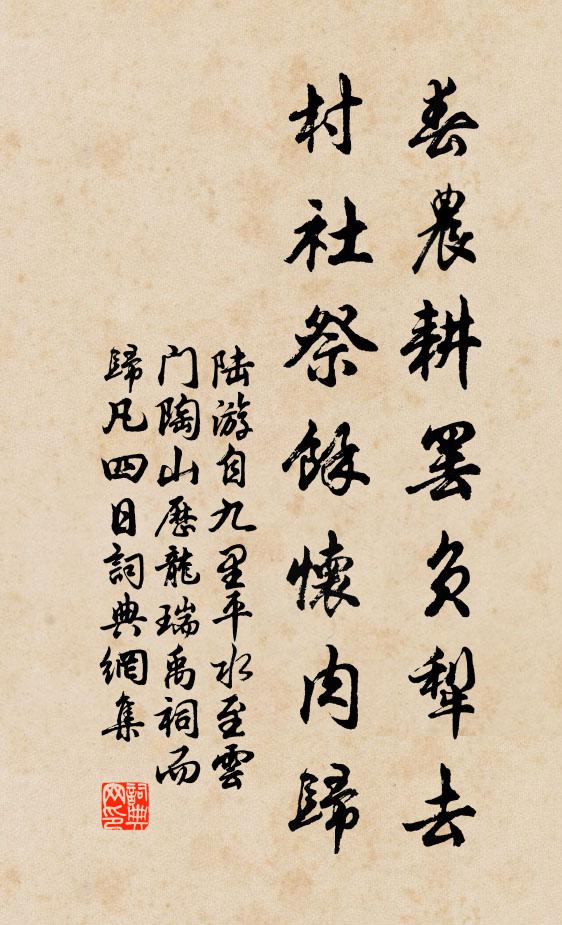 春農耕罢负犁去
村社祭餘懷肉歸
陆游自九里平水至雲
门陶山歷龍瑞禹祠而
歸凡四日詞典網集
詞典
网印